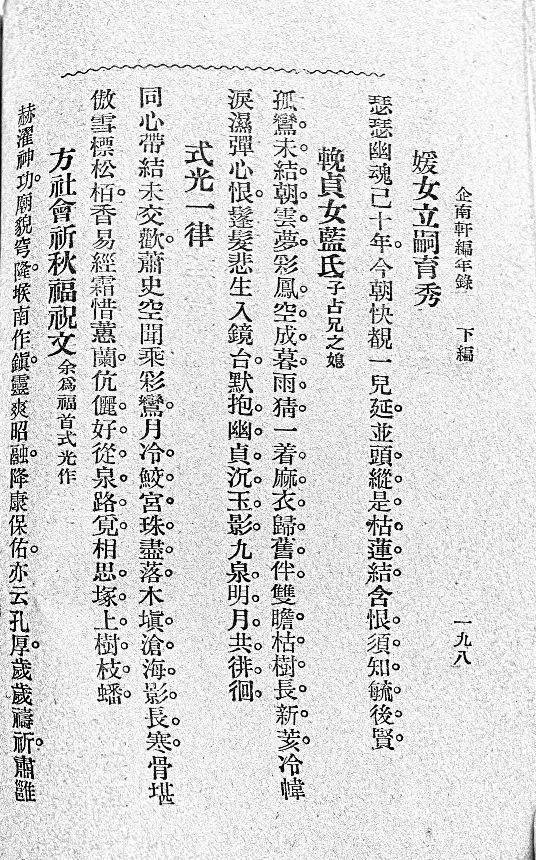 企南軒編年錄 下編 一九八
媛女立嗣育秀
瑟瑟幽魂已十年。今朝快覩一兒延。並頭縱是枯蓮結。含恨須知毓後賢。
輓貞女藍氏子占兄之媳
孤鸞未結朝雲夢。彩鳳空成暮雨猜。一着麻衣歸舊伴。雙瞻枯樹長新荄。冷幃
淚濕彈心恨。鬖髮悲生入鏡台。默抱幽貞沉玉影。九泉明月共徘徊。
式光一律
同心帶結未交歡。蕭史空聞乘彩鸞。月冷鮫宮珠盡落。木塡滄海影長寒。骨堪
傲雪標松栢。香易經霜惜蕙蘭。伉儷好從泉路覓。相思塚上樹枝蟠。
方社會祈秋福祝文余爲福首式光作
赫濯神功。廟貌穹隆。堠南作鎭。靈爽昭融。降康保佑。亦云孔厚。歲歲禱祈。肅雝